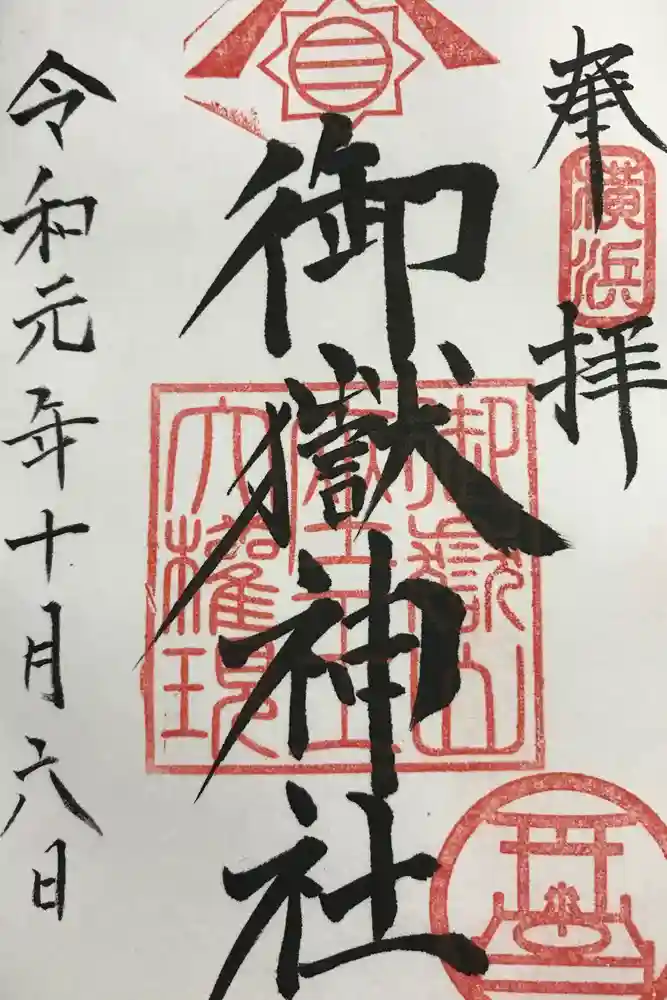 奉拝
横浜
御嶽神社
御嶽山
蔵王
大権現
令和元年十月六日